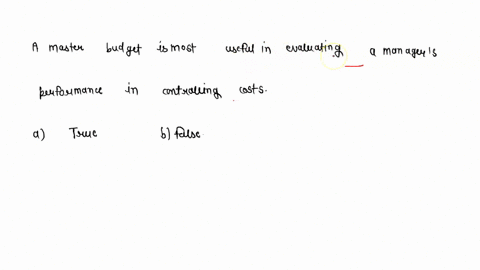 A master budget is most useful in evaluating a manager's
performance in controlling costs.
a) True b) false